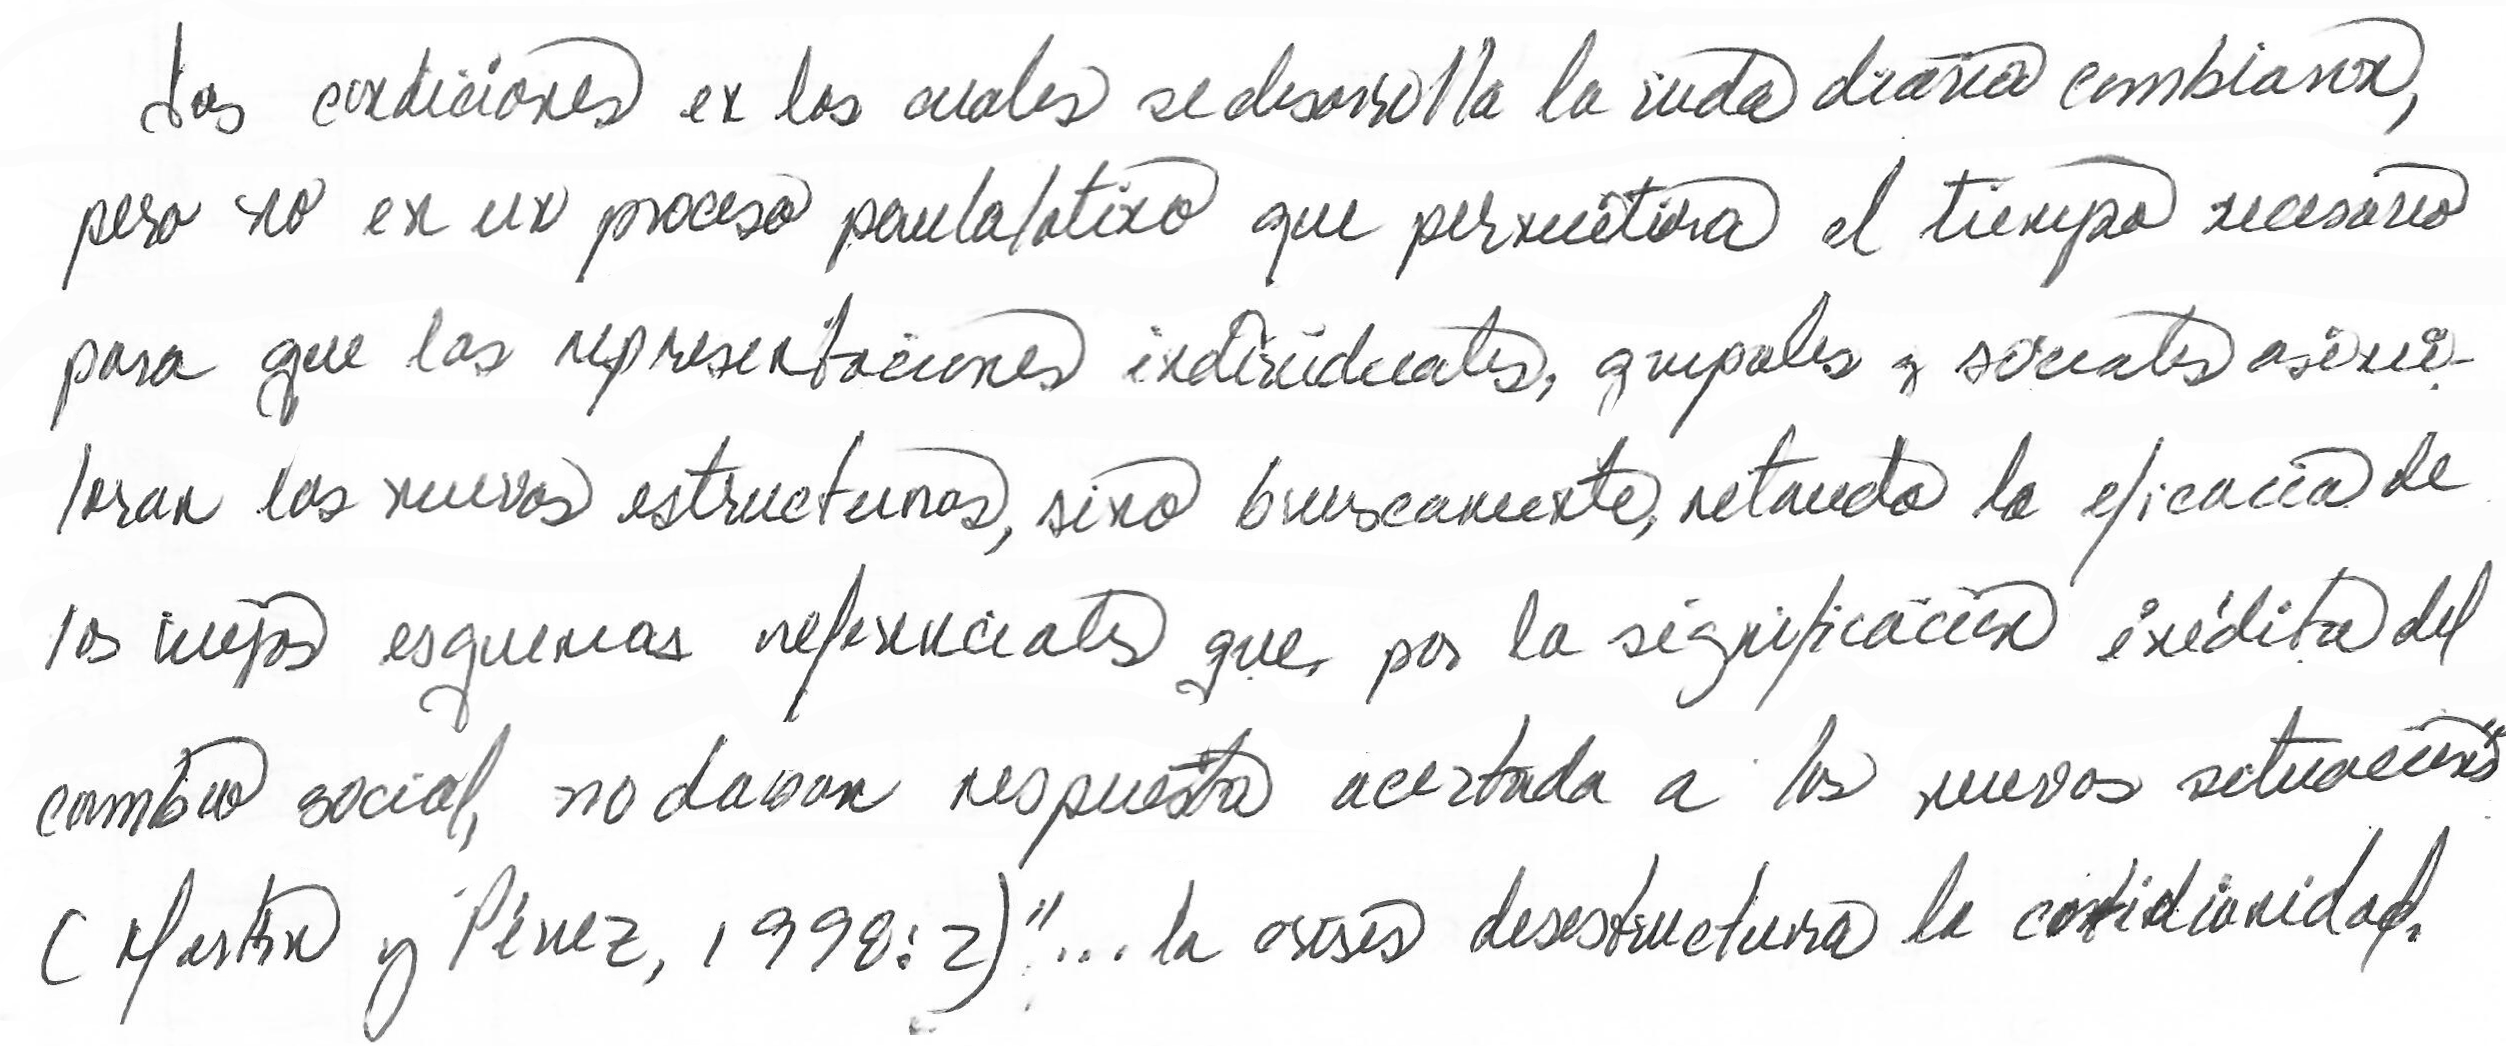 Las condiciones en las cuales se desarrolla la vida diaria cambiaron,
pero no en un proceso paulatino que permitiera el tiempo necesario
para que las representaciones individuales, grupales y sociales asimi-
laran las nuevas estructuras, sino bruscamente, retando la eficacia de
los viejos esquemas referenciales que, por la significación inédita del
cambio social, no daban respuesta acertada a las nuevas situaciones
(Martín y Pérez, 1998:2) "... la crisis desestructura la cotidianidad.